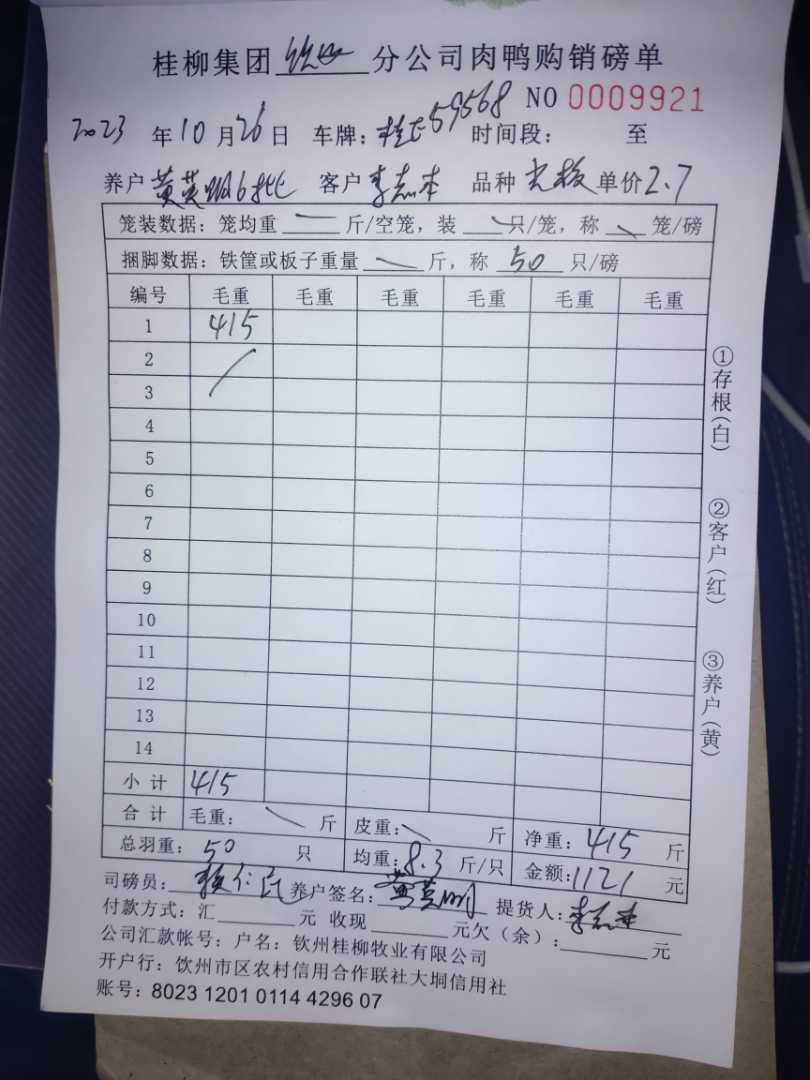 桂柳集团 钦州 分公司肉鸭购销磅单
NO 0009921
2023 年 10 月 26 日 车牌: 59568 时间段: 至
养户 黄英明6批 客户 李志本 品种 单价 2.7
笼装数据: 笼均重 斤/空笼, 装 只/笼, 称 笼/磅
捆脚数据: 铁筐或板子重量 斤, 称 50 只/磅
编号 毛重 毛重 毛重 毛重 毛重 毛重
1 415
2
3
4
5
6
7
8
9
10
11
12
13
14
小计 415
合计 毛重: 斤 皮重: 斤 净重: 415 斤
总羽重: 50 只 均重: 8.3 斤/只 金额: 1121 元
司磅员: 养户签名: 黄英明 提货人: 李志本
付款方式: 汇 元 收现 元欠(余): 元
公司汇款帐号: 户名: 钦州桂柳牧业有限公司
开户行: 饮州市区农村信用合作联社大垌信用社
账号: 8023 1201 0114 4296 07
①存根(白)
②客户(红)
③养户(黄)